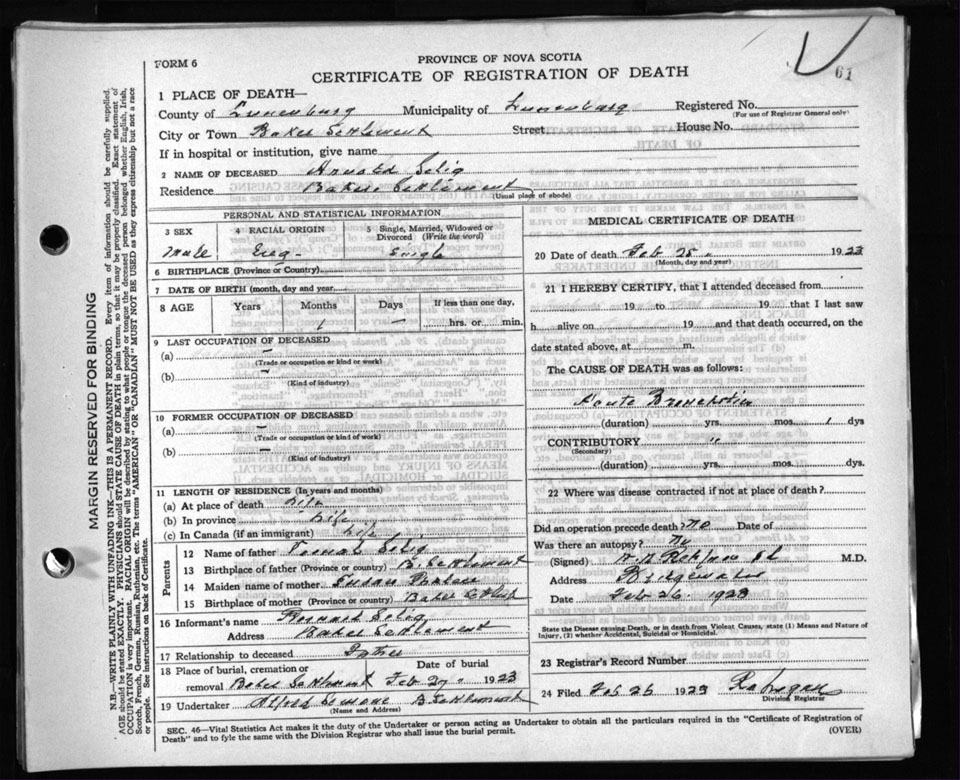 61
PROVINCE OF NOVA SCOTIA
FORM 6
CERTIFICATE OF REGISTRATION OF DEATH
1 PLACE OF DEATH—
County of Lunenburg Municipality of Lunenburg Registered No.
(For use of Registrar General only)
City or Town Baker Settlement Street House No.
If in hospital or institution, give name
2 NAME OF DECEASED Arnold Selig
Residence Bakers Settlement
(Usual place of abode)
PERSONAL AND STATISTICAL INFORMATION
3 SEX 4 RACIAL ORIGIN 5 Single, Married, Widowed or Divorced (Write the word)
Male Single
6 BIRTHPLACE (Province or Country)
7 DATE OF BIRTH (month, day and year)
8 AGE Years Months Days If less than one day,
1 — hrs. or min.
9 LAST OCCUPATION OF DECEASED
(a) —
(Trade or occupation or kind of work)
(b) —
(Kind of industry)
10 FORMER OCCUPATION OF DECEASED
(a) —
(Trade or occupation or kind of work)
(b)
(Kind of industry)
11 LENGTH OF RESIDENCE (In years and months)
(a) At place of death Life
(b) In province Life
(c) In Canada (if an immigrant) Life
Parents
12 Name of father Selig
13 Birthplace of father (Province or country) B. Settlement
14 Maiden name of mother Susan
15 Birthplace of mother (Province or Country) Baker
16 Informant's name Selig
Address Baker Settlement
17 Relationship to deceased Father
18 Place of burial, cremation or removal Baker Settlement Date of burial Feb 27 1923
19 Undertaker Alfred B Settlement
(Name and Address)
MEDICAL CERTIFICATE OF DEATH
20 Date of death Feb 25 1923
(Month, day and year)
21 I HEREBY CERTIFY, that I attended deceased from
19 to 19 that I last saw
h alive on 19 and that death occurred, on the
date stated above, at m.
The CAUSE OF DEATH was as follows:
Acute Bronchitis
(duration) yrs. mos. 1 dys
CONTRIBUTORY "
(Secondary)
(duration) yrs. mos. dys.
22 Where was disease contracted if not at place of death?
Did an operation precede death? No Date of
Was there an autopsy? No
(Signed) M.D.
Address Bridgewater
Date Feb 26 1923
State the Disease causing Death, or in death from Violent Causes, state (1) Means and Nature of
Injury, (2) whether Accidental, Suicidal or Homicidal.
23 Registrar's Record Number
24 Filed Feb 26 1923
Division Registrar
SEC. 46—Vital Statistics Act makes it the duty of the Undertaker or person acting as Undertaker to obtain all the particulars required in the "Certificate of Registration of
Death" and to fyle the same with the Division Registrar who shall issue the burial permit. (OVER)
MARGIN RESERVED FOR BINDING
N.B.—WRITE PLAINLY WITH UNFADING INK—THIS IS A PERMANENT RECORD. Every item of information should be carefully supplied.
AGE should be stated EXACTLY. PHYSICIANS should STATE CAUSE OF DEATH in plain terms, so that it may be properly classified. Exact statement of
OCCUPATION is very important. RACIAL ORIGIN will be described by stating to what people or tongue the deceased person belonged whether English, Irish,
Scotch, French, German, Russian, Ruthenian, etc. The terms "AMERICAN" OR "CANADIAN" MUST NOT BE USED as they express citizenship but not a race
or people. See instructions on back of Certificate.